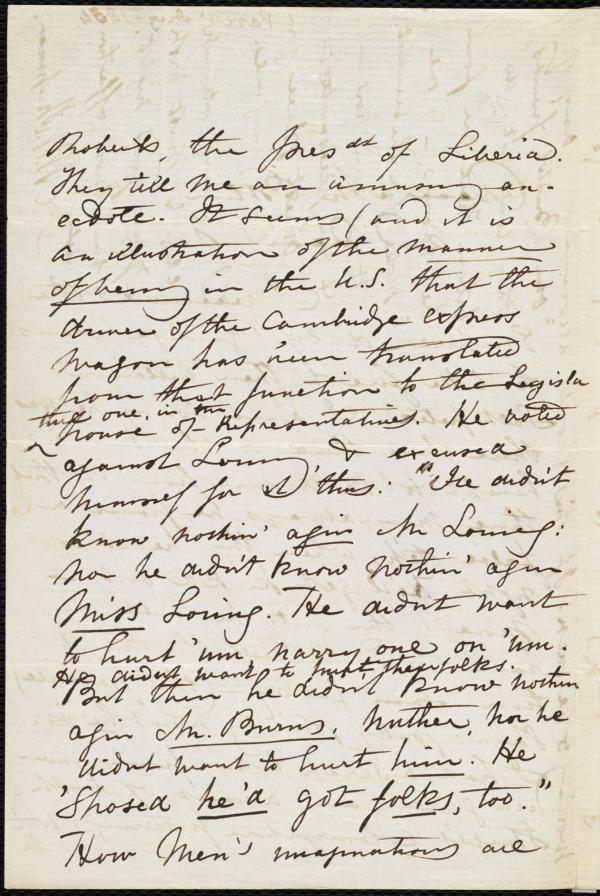 Roberts, the Presdt of Liberia.
They tell me an amusing an-
ecdote. It seems (and it is
an illustration of the manner
of being in the U.S. that the
driver of the Cambridge express
wagon has been translated
from that function to the Legisla
ture one, in the
house of Representatives. He voted
against Loring & excused
himself for it thus: "He didn't
know nothin' agin Mr Loring:
nor he didn't know nothin' agin
Miss Loring. He didnt want
to hurt 'um narry one on 'um.
He didnt want to hurt their folks.
But then he didn't know nothin
agin Mr. Burns, nuther, nor he
didnt want to hurt him. He
'Sposed he'd got folks, too."
How Men's imaginations are